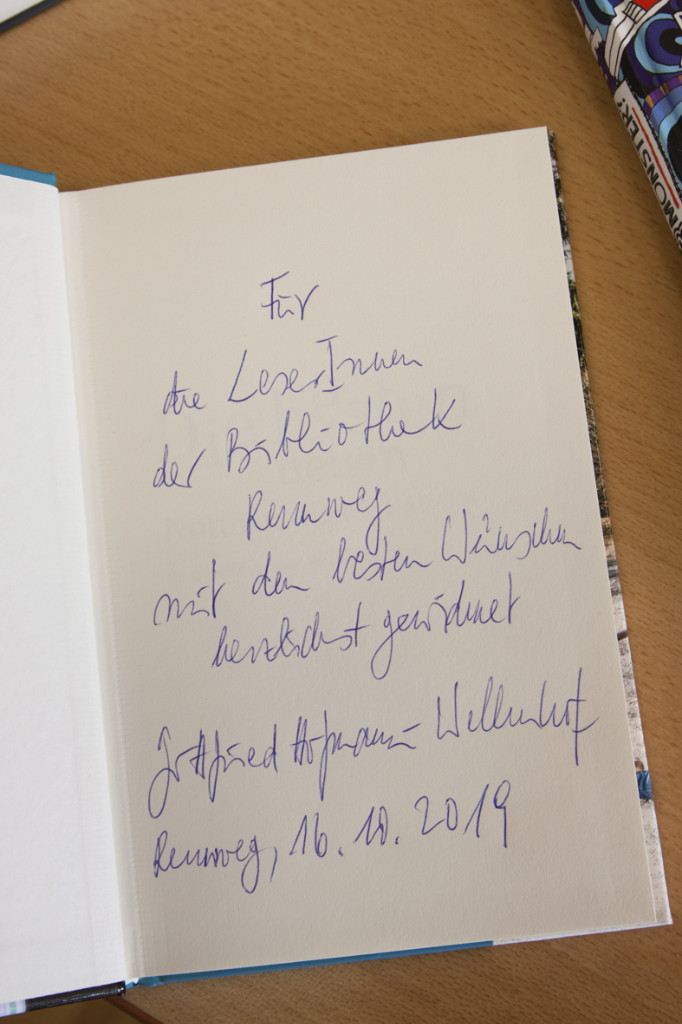 Für
die LeserInnen
der Bibliothek
Rennweg
mit den besten Wünschen
herzlichst gewidmet
Gottfried Hofmann-Wellenhof
Rennweg, 16.10.2019
MONSTER!